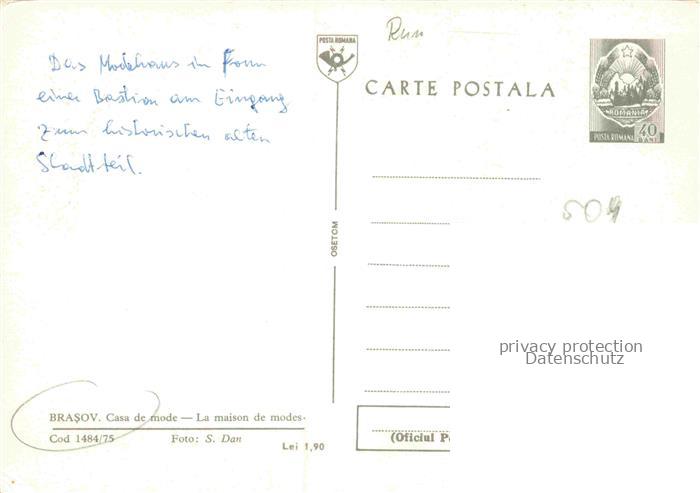 Das Modehaus in Form
einer Bastion am Eingang
zum historischen alten
Stadtteil.
POSTA ROMANA
Rum
CARTE POSTALA
ROMANIA
POSTA ROMANA 40 BANI
509
OSETOM
privacy protection
Datenschutz
BRAȘOV. Casa de mode — La maison de modes.
Cod 1484/75 Foto: S. Dan
Lei 1,90
(Oficiul P